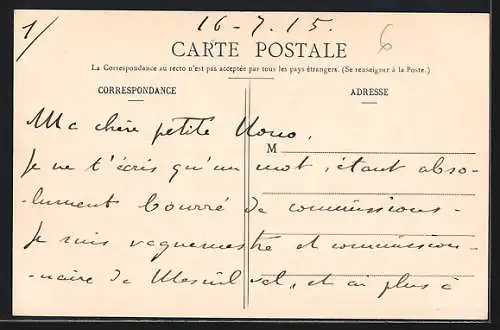 1/
16-7.15.
6
CARTE POSTALE
La Correspondance au recto n'est pas acceptée par tous les pays étrangers. (Se renseigner à la Poste.)
CORRESPONDANCE
ADRESSE
M
Ma chère petite Nono.
Je ne t'écris qu'un mot, étant abso-
-lument bourré de commissions-
Je suis vaguemestre et commission-
-naire de Mesnil val, et ai plus à